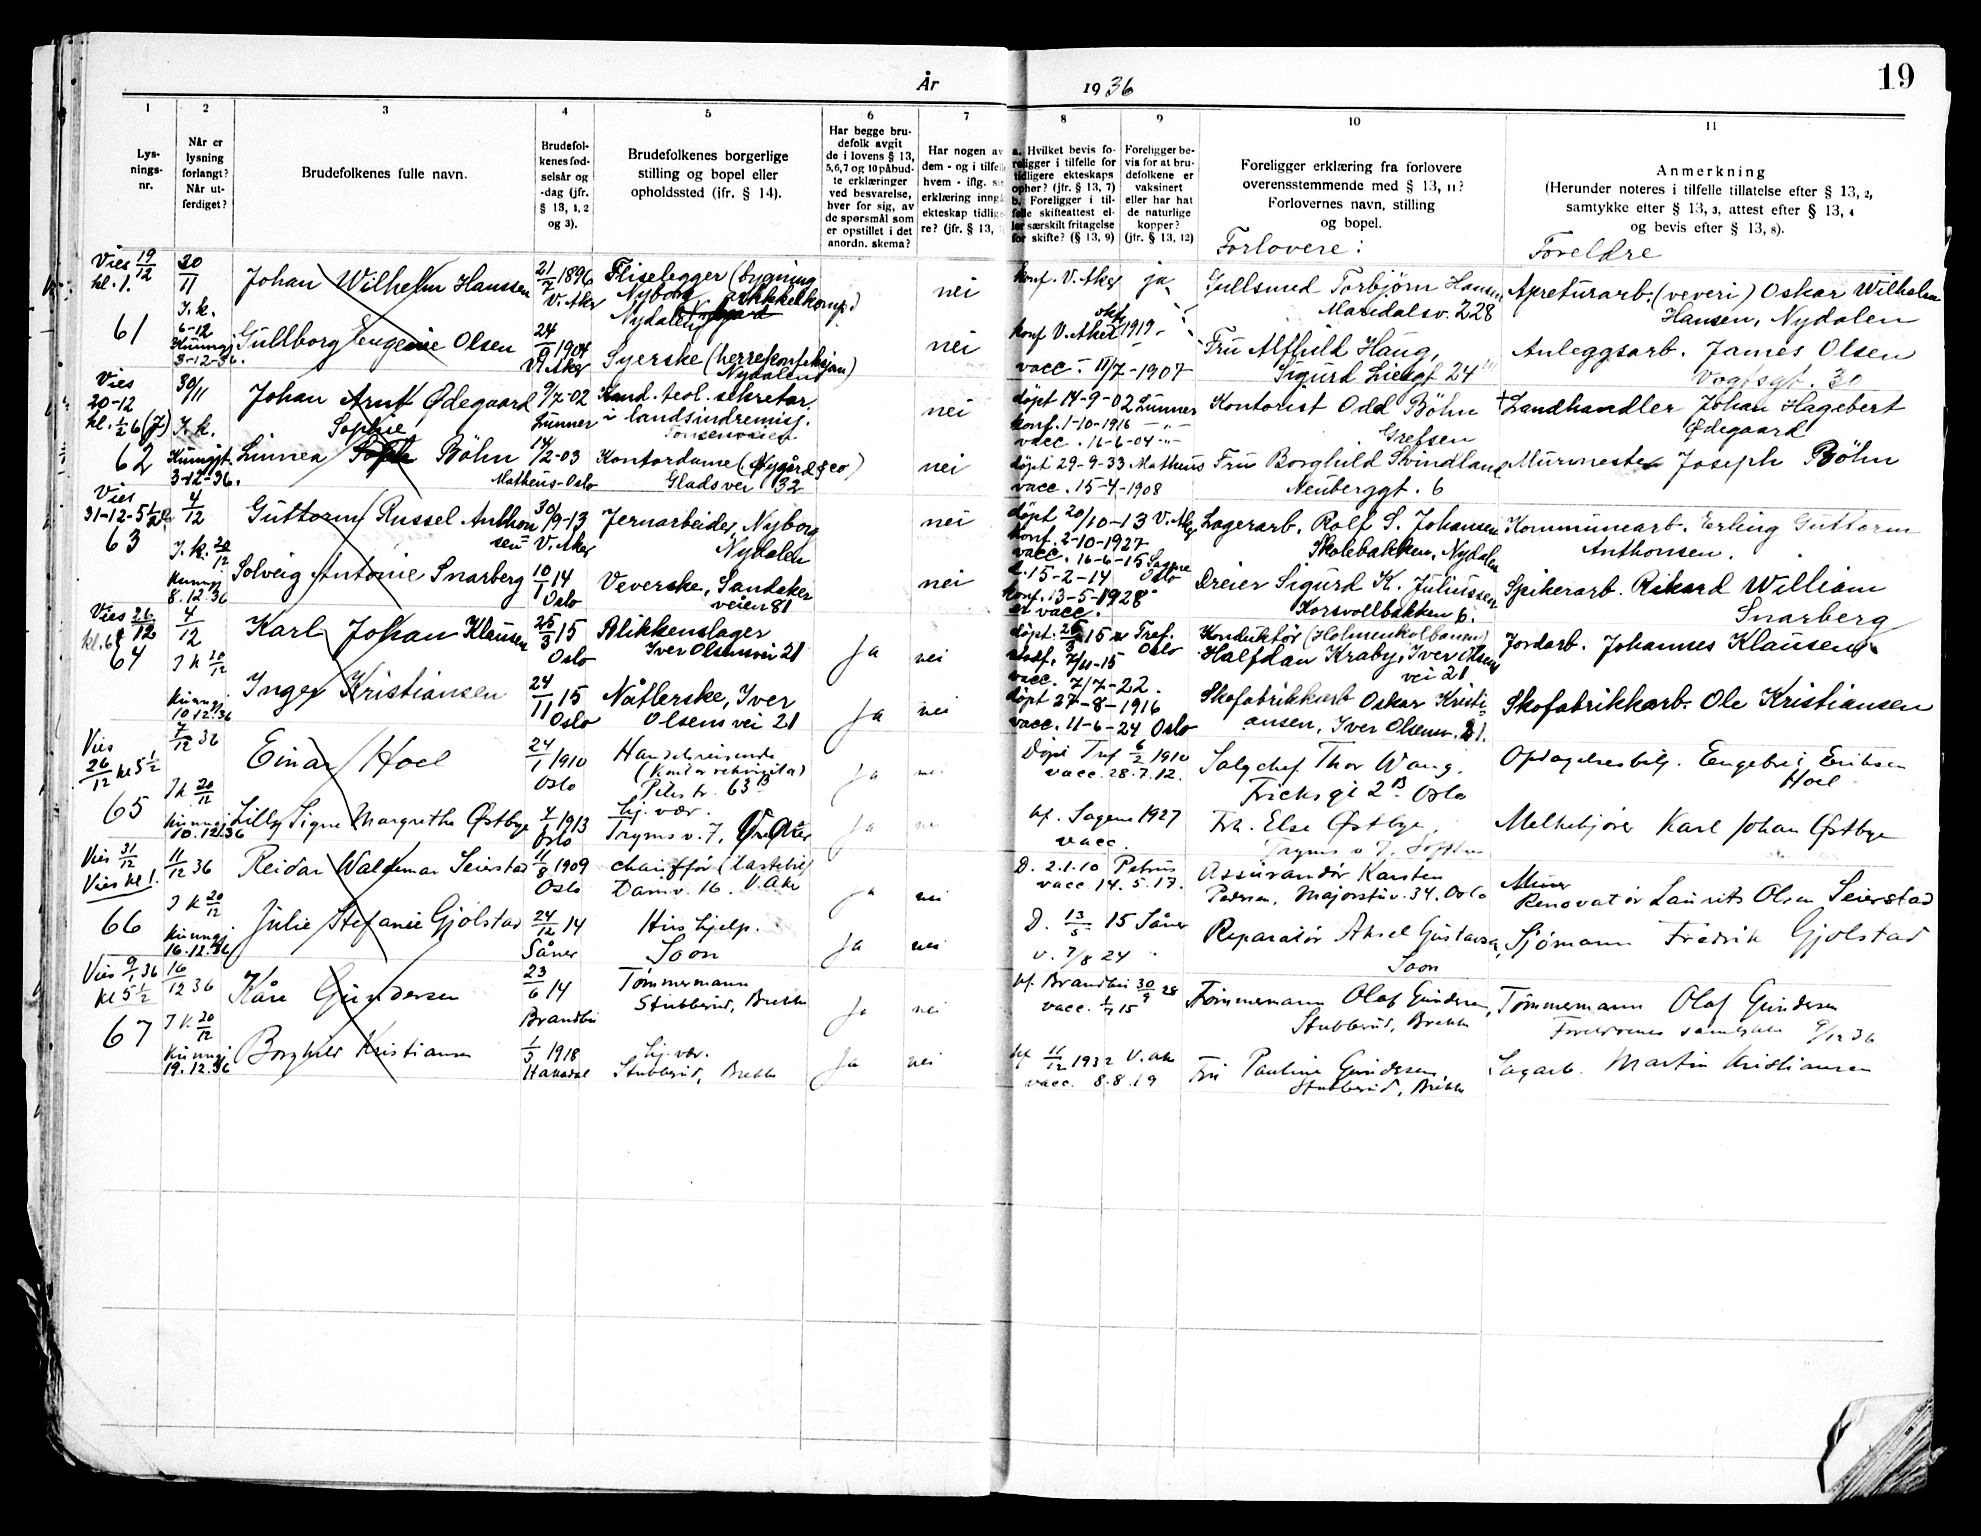 År 1936
19
1
2
3
4
5
6
7
8
9
10
11
Lys-
nings-
nr.
Når er
lysning
forlangt?
Når ut-
ferdiget?
Brudefolkenes fulle navn.
Brudefol-
kenes fød-
selsår og
-dag (jfr.
§ 13, 1, 2
og 3).
Brudefolkenes borgerlige
stilling og bopel eller
opholdssted (ifr. § 14).
Har begge bru-
defolk avgit
de i lovens § 13,
5,6,7 og 10 påbud-
te erklæringer
ved besvarelse,
hver for sig, av
de spørsmål som
er opstillet i det
anordn. skema?
Har nogen av
dem - og i tilfelle
hvem - iflg. sin
erklæring inngå
ekteskap tidlige-
re? (jfr. § 13,
a. Hvilket bevis fo-
religger i tilfelle for
tidligere ekteskaps
ophør? (jfr. § 13, 7)
b. Foreligger i til-
felle skifteattest el-
ler særskilt fritagelse
for skifte? (§ 13, 9)
Foreligger be-
vis for at bru-
defolkene er
vaksinert
eller har hat
de naturlige
kopper?
(jfr. § 13, 12)
Foreligger erklæring fra forlovere
overensstemmende med § 13, 11?
Forlovernes navn, stilling
og bopel.
Forlovere:
Anmerkning
(Herunder noteres i tilfelle tillatelse efter § 13, 2,
samtykke efter § 13, 3, attest efter § 13, 4
og bevis efter § 13, 8).
Foreldre
Vies 19/12
kl. 1.
61
30/11
J. k.
6-12
Kunngj.
3-12-36.
Johan Wilhelm Hanssen
21/7 1896
V. Aker
Fliselegger (bygning
Nyborg
Nydalen
nei
konf. V. Aker ja
Gullsmed Torbjørn Hansen
Maridalsv. 228
Apreturarb. (veveri) Oskar Wilhelm
Hansen, Nydalen
Gullborg Eugenie Olsen
24/9 1904
V. Aker
Syerske (herrekonfeksjon)
Nydalen
nei
konf V. Aker 1919
vacc. 11/7-1907
Fru Alfhild Haug,
Sigurd Liesgt 24
Anleggsarb. James Olsen
Vogtsgt. 30
Vies
20-12
kl. 1/2 6 (J)
62
30/11
J. k.
Kunngjt.
3-12-36.
Johan Arnt Ødegaard
9/7-02
Lunner
Kand. teol. sekretær
i landsindremisj.
nei
døpt 14-9-02 Lunner
konf. 1-10-1916 -"-
vacc. 16-6-04 -"-
Kontorist Odd Bøhn
Grefsen
+ Landhandler Johan Hagebert
Ødegaard
Sophie
Linnea Bøhn
14/2-03
Matheus-Oslo
Kontordame (Nygård & co)
Gladsvei 32
nei
døpt 29-9-33 Matheus
vacc. 15-4-1908
Fru Borghild Svindland
Neuberggt. 6
Murmester Joseph Bøhn
Vies
31-12-5 1/2
63
4/12
J. k. 20/12
Kunngj
8.12.36
Guttorm Russel Anthon
sen
30/9-13
V. Aker
Jernarbeider, Nyborg
Nydalen
nei
døpt 20/10-13 V. Aker
konf. 2-10-1927
vacc. 16-6-15
Lagerarb. Rolf S. Johansen
Skolebakken, Nydalen
Kommunearb. Erling Guttorm
Anthonsen.
Solveig Antonie Snarberg
10/1 14
Oslo
Veverske, Sandaker
veien 81
nei
d. 15-2-14 Oslo
konf. 13-5-1928
er vacc.
Dreier Sigurd K. Juliussen
Korsvollbakken 6.
Spikerarb. Rikard William
Snarberg
Vies 26/12
64
4/12
J k 20/12
Kunngj
10.12.36
Karl Johan Klausen
25/3 15
Oslo
Blikkenslager
Iver Olsensvei 21
Ja
nei
Tref.
Oslo
vacc. 7/7-22.
Konduktør (Holmenkolbanen)
Halfdan Kraby, Iver Olsens
vei 21
Jordarb. Johannes Klausen
Inger Kristiansen
24/11 15
Oslo
Nåtlerske, Iver
Olsens vei 21
Ja
nei
døpt 27-8-1916
vacc. 11-6-24 Oslo
Skofabrikkarb Oskar Kristi-
ansen, Iver Olsensv. 21.
Skofabrikkarb. Ole Kristiansen
Vies
26/12 kl 5 1/2
65
7/12 36
J k 20/12
Kunngj
10.12.36
Einar Hoel
24/1 1910
Oslo
Handelsreisende
(Kontorrekvisita)
63 B
Ja
nei
Døpt Tref 6/2 1910
vacc. 28.7.12.
Salgschef Thor Wang.
Fricksgt 2 B Oslo
Opdagelsesbetj. Engebret Eriksen
Hoel
Lilly Signe Margrethe Østbye
4/1 1913
Oslo
Hj. vær.
Tryms v. 7, V. Aker
Ja
nei
kf. Sagene 1927
vacc.
Frk. Else Østbye,
Tryms v 7.
Melkekjører Karl Johan Østbye
Vies 31/12
Vies kl 1.
66
11/12 36
J k 20/12
Kunngj
16.12.36
Reidar Waldemar Seierstad
11/8 1909
Oslo
chauffør (lastebil)
Damv. 16. V. Aker
Ja
nei
D. 2.1.10 Petrus
vacc 14.5.17.
Assurandør Karsten
Pedersen, Majorstuv. 34. Oslo
Renovatør Laurits Olsen Seierstad
Julie Stefanie Gjølstad
24/12 14
Såner
Hus hjelp.
Soon
Ja
nei
D. 13/5 15 Såner
v. 7/8 24
Reparatør Aksel Gustavsen,
Soon
Sjømann Fredrik Gjølstad
Vies 9/1 36
kl 5 1/2
67
16/12 36
J k 20/12
Kunngj
19.12.36
Kåre Gundersen
23/6 14
Brandbu
Tømmermann
Stubberud, Brekke
Ja
nei
kf. Brandbu 30/9 28
vacc. 1/7 15
Tømmermann Olaf Gundersen,
Stubberud, Brekke
Tømmermann Olaf Gundersen
Foreldrenes samtykke 9/12 36
Borghild Kristiansen
1/5 1918
Hakadal
Hj. vær.
Stubberud, Brekke
Ja
nei
kf 11/12 1932 V. Aker
vacc. 8.8.19
Fru Pauline Gundersen,
Stubberud, Brekke
Sagarb. Martin Kristiansen